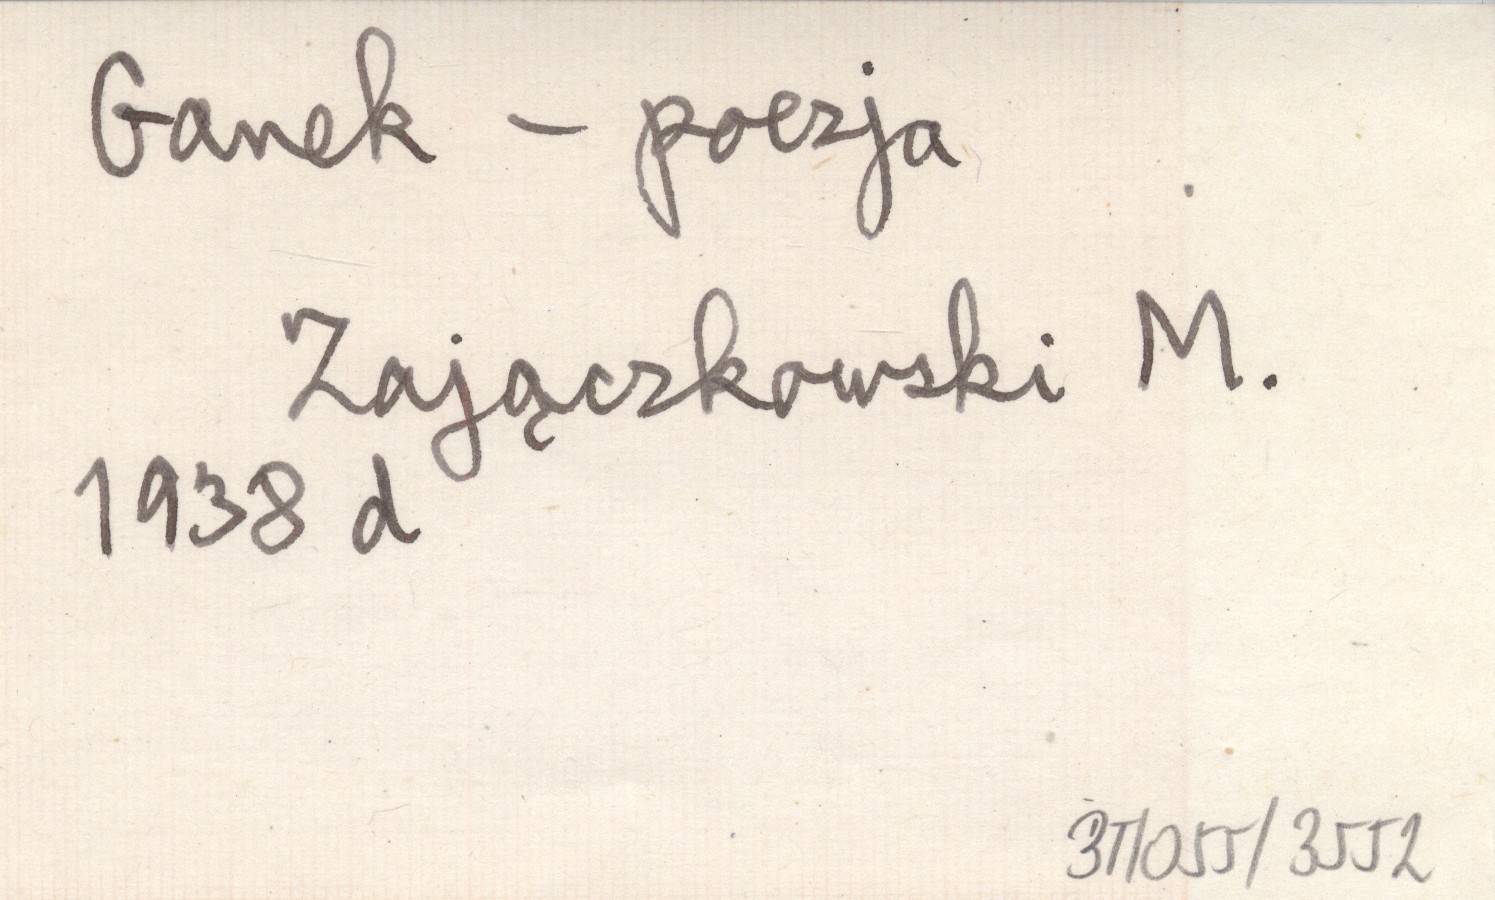 Ganek – poezja
Zajączkowski M.
1938 d
37/055/3552